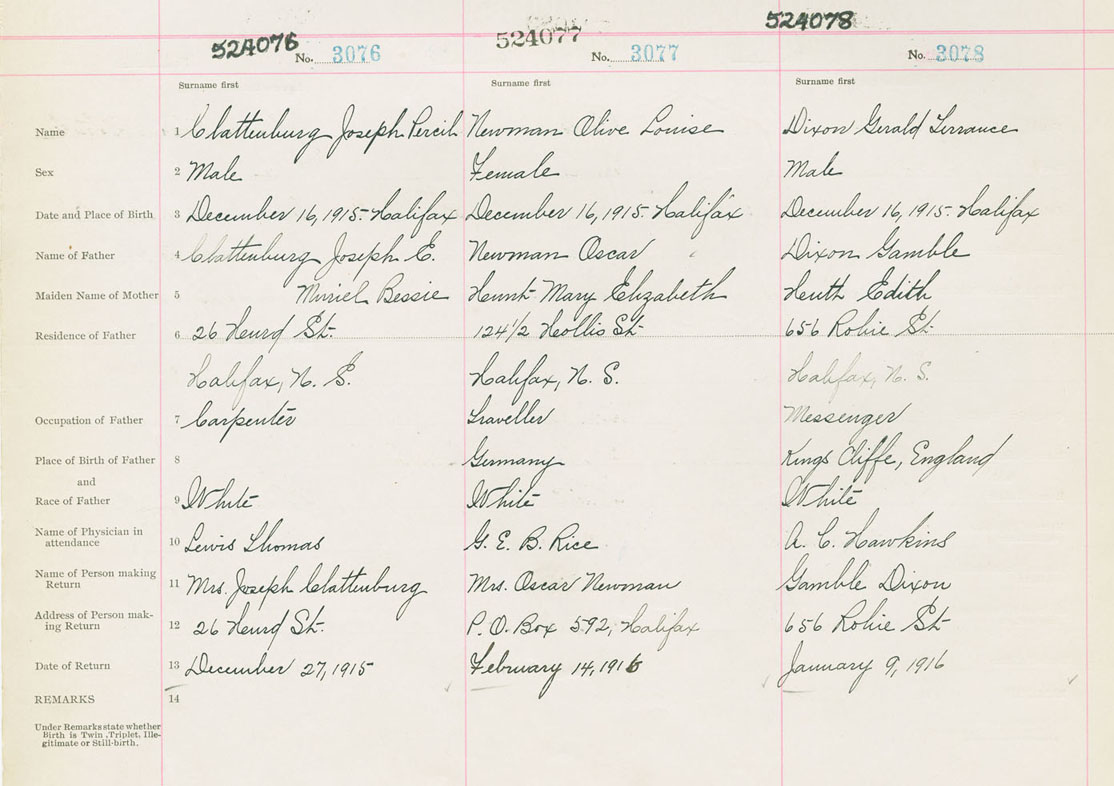 524076 524077 524078
No. 3076 No. 3077 No. 3078
Surname first Surname first Surname first
Name 1 Clattenburg Joseph Percil Newman Olive Louise Dixon Gerald Terrance
Sex 2 Male Female Male
Date and Place of Birth 3 December 16, 1915- Halifax December 16, 1915- Halifax December 16, 1915- Halifax
Name of Father 4 Clattenburg Joseph E. Newman Oscar Dixon Gamble
Maiden Name of Mother 5 Muriel Bessie Hunt Mary Elizabeth Heuth Edith
Residence of Father 6 26 Heurd St. 124 1/2 Hollis St- 656 Robie St-
Halifax, N. S. Halifax, N. S. Halifax, N. S.
Occupation of Father 7 Carpenter Traveller Messenger
Place of Birth of Father 8 Germany Kings Cliffe, England
and
Race of Father 9 White White White
Name of Physician in attendance 10 Lewis Thomas G. E. B. Rice A. C. Hawkins
Name of Person making Return 11 Mrs. Joseph Clattenburg Mrs. Oscar Newman Gamble Dixon
Address of Person making Return 12 26 Heurd St. P. O. Box 592, Halifax 656 Robie St-
Date of Return 13 December 27, 1915 February 14, 1916 January 9, 1916
REMARKS 14
Under Remarks state whether
Birth is Twin, Triplet, Ille-
gitimate or Still-birth.